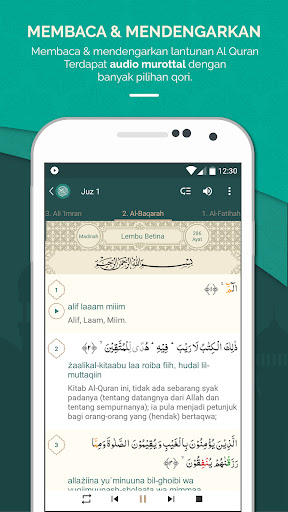 MEMBACA & MENDENGARKAN
Membaca & mendengarkan lantunan Al Quran
Terdapat audio murottal dengan
banyak pilihan qori.
12:30
Juz 1
3. Ali 'Imran 2. Al-Baqarah 1. Al-Fatihah
Madinah Lembu Betina 286 Ayat
بِسْمِ اللّٰهِ الرَّحْمٰنِ الرَّحِيْمِ
1 الٓمّٓ ۚ ﴿١﴾
alif laaam miiim
Alif, Laam, Miim.
2 ذٰلِكَ الْكِتٰبُ لَا رَيْبَ ۛ فِيْهِ ۛ هُدًى لِّلْمُتَّقِيْنَ ۙ ﴿٢﴾
żaalikal-kitaabu laa roiba fiih, hudal lil-
muttaqiin
Kitab Al-Quran ini, tidak ada sebarang syak
padanya (tentang datangnya dari Allah dan
tentang sempurnanya); ia pula menjadi petunjuk
bagi orang-orang yang (hendak) bertaqwa;
3 الَّذِيْنَ يُؤْمِنُوْنَ بِالْغَيْبِ وَيُقِيْمُوْنَ الصَّلٰوةَ وَمِمَّا
رَزَقْنٰهُمْ يُنْفِقُوْنَ ۙ ﴿٣﴾
allażiina yu`minuuna bil-ghoibi wa
yuqiimuunash-sholaata wa mimmaa